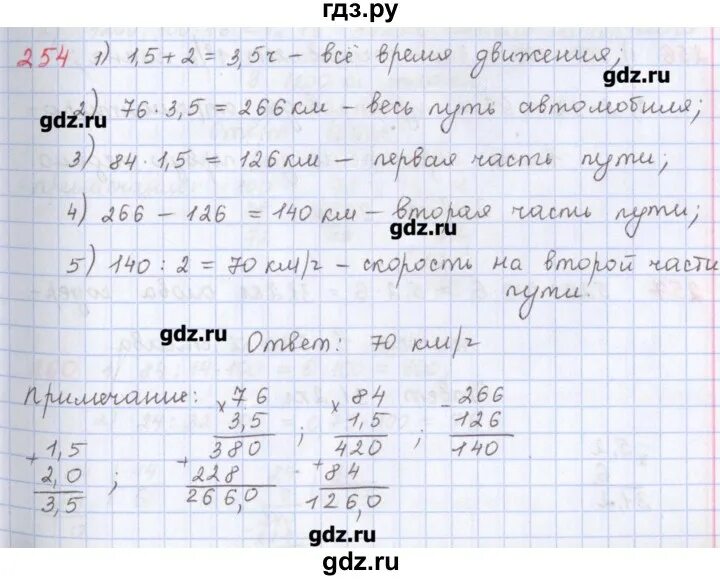 гдз.ру
254 1) 1,5 + 2 = 3,5 ч – всё время движения;
gdz.ru
2) 76 · 3,5 = 266 км – весь путь автомобиля;
gdz.ru
3) 84 · 1,5 = 126 км – первая часть пути;
4) 266 – 126 = 140 км – вторая часть пути;
gdz.ru
5) 140 : 2 = 70 км/ч – скорость на второй части
пути.
gdz.ru
Ответ: 70 км/ч
Примечание: × 76 × 84 - 266
3,5 ; 1,5 ; 126
+ 1,5 380 420 140
2,0 ; + 228 + 84
3,5 266,0 126,0
gdz.ru
gdz.ru